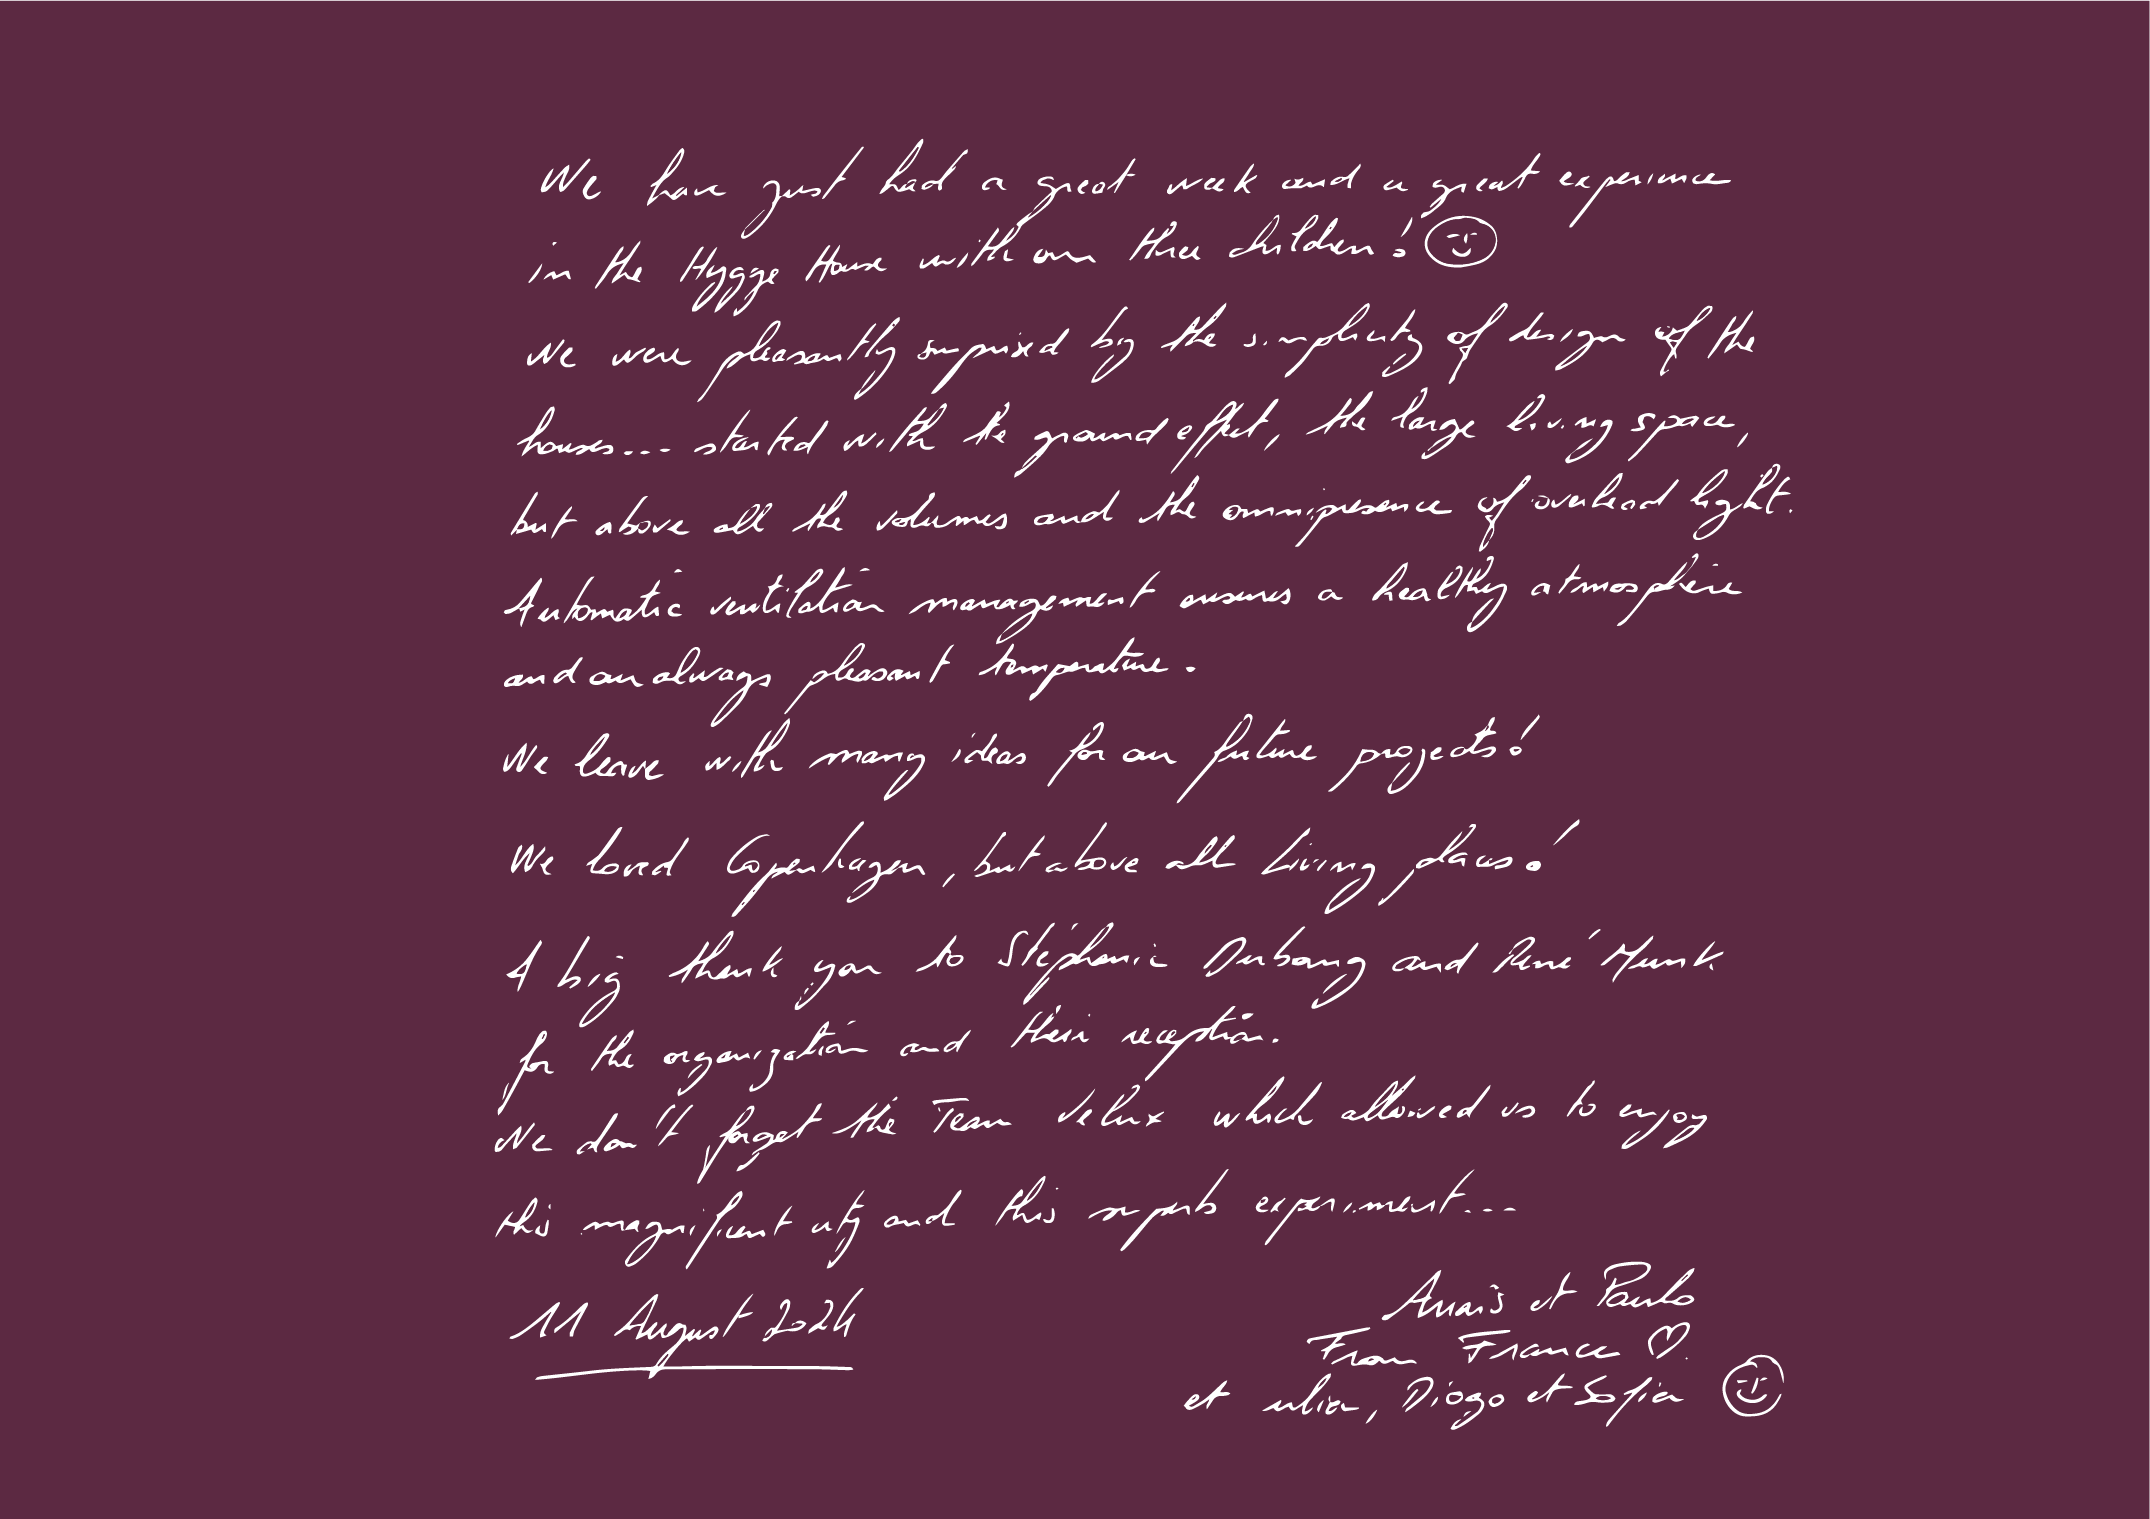 We have just had a great week and a great experience
in the Hygge House with our three children!
We were pleasantly surprised by the simplicity of design of the
houses... started with the ground effect, the large living space,
but above all the volumes and the omnipresence of overhead light.
Automatic ventilation management ensures a healthy atmosphere
and an always pleasant temperature.
We leave with many ideas for our future projects!
We loved Copenhagen, but above all Living places!
A big thank you to Stéphanie and René Munk
for the organization and their reception.
We don't forget the Team Velux which allowed us to enjoy
this magnificent city and this superb experiment...
11 August 2024
Anaïs et Paulo
From France
et ulia, Diogo et Sofia